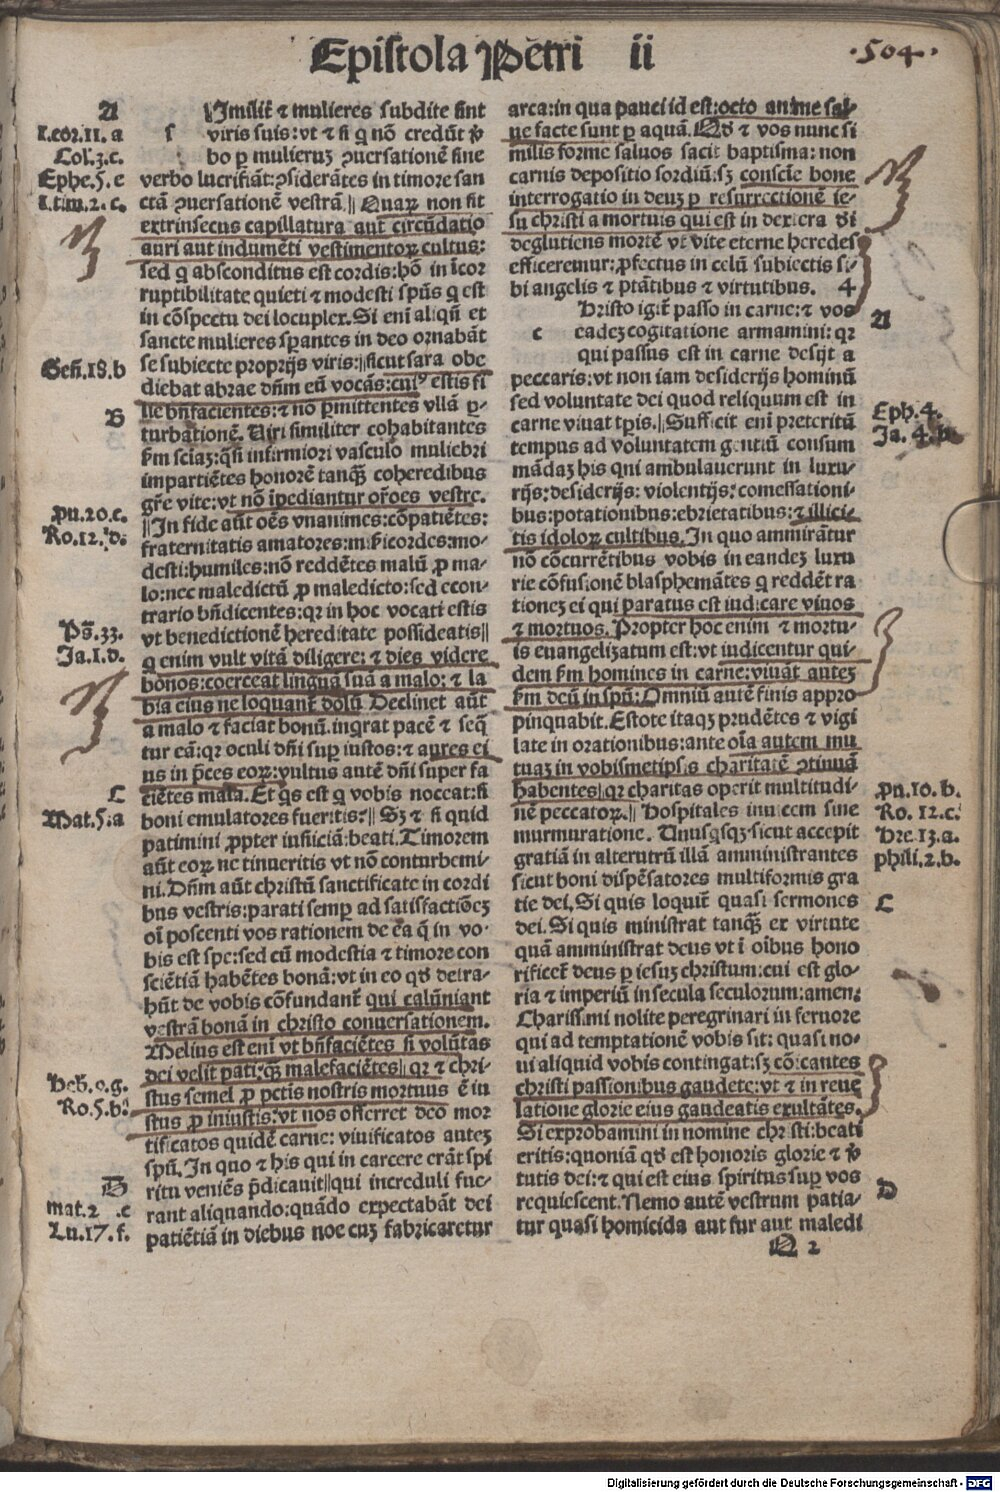 Epistola Petri ii
.504.
A
I.cor.11.a
Col.3.c.
Ephe.5.e
I.tim.2.c.
Gen̄.18.b
B
p̱ꝛu.20.c.
Ro.12.d.
Ps̄.33.
Ja.I.d.
C
Mat.5.a
Heb.9.g.
Ro.5.b
D
mat.2 .e
Lu.17.f.
Imilit̄ ⁊ mulieres subdite sint
s viris suis:vt ⁊ si q̄ nō credūt v̄
bo ꝑ mulieruꝫ ꝯuersationē sine
verbo lucrifiāt:ꝯsiderātes in timore san
ctā ꝯuersationē vestrā‖ Quaꝝ non sit
extrinsecus capillatura aut circūdatio
auri aut indumēti vestimentoꝝ cultus:
sed q̄ absconditus est cordis:hō in īcor
ruptibilitate quieti ⁊ modesti spūs q̄ est
in cōspectu dei locuplex.Si enī aliqn̄ et
sancte mulieres sꝑantes in deo ornabāt
se subiecte proprijs viris:‖sicut sara obe
diebat abrae dn̄m eū vocās:cuiꝰ estis fi
lie bn̄facientes:⁊ nō ꝑmittentes vllā ꝑ-
turbationē. Viri similiter cohabitantes
ẜm sciaꝫ:q̄si infirmiori vasculo muliebri
impartiētes honorē tanqꝫ coheredibus
gr̄e vite:vt nō īpediantur or̄oes vestre.
‖In fide aūt oēs vnanimes:cōpatiētes:
fraternitatis amatores:mīsicordes:mo-
desti:humiles:nō reddētes malū ꝓ ma-
lo:nec maledictū ꝓ maledicto:sed econ-
trario bn̄dicentes:qꝛ in hoc vocati estis
vt benedictionē hereditate possideatis‖
q̄ enim vult vitā diligere: ⁊ dies videre
bonos:coerceat linguā suā a malo: ⁊ la
bia eius ne loquant̄ dolū Declinet aūt
a malo ⁊ faciat bonū.inq̄rat pacē ⁊ seq̄
tur eā:qꝛ oculi dn̄i suꝑ iustos:⁊ aures ei
us in p̄ces eoꝝ:vultus autē dn̄i super fa
ciētes mala.Et q̄s est q̄ vobis noceat:si
boni emulatores fueritis?‖ Sꝫ ⁊ si quid
patimini ꝓpter iusticiā:beati.Timorem
aūt eoꝝ ne timueritis vt nō conturbemi-
ni.Dn̄m aūt christū sanctificate in cordi
bus vestris:parati semꝑ ad satisfactiōeꝫ
oī poscenti vos rationem de ea q̄ in vo-
bis est spe:sed cū modestia ⁊ timore con
sciētiā habētes bonā:vt in eo qd̄ detra-
hūt de vobis cōfundant̄ qui calūniant
vestrā bonā in christo conuersationem.
Melius est enī vt bn̄faciētes si volūtas
dei velit pati:qꝫ malefaciētes‖ qꝛ ⁊ chri-
stus semel ꝓ pctīs nostris mortuus ē iu
stus ꝓ iniustis:vt nos offerret deo mor
tificatos quidē carne: viuificatos auteꝫ
spū. In quo ⁊ his qui in carcere erāt spi
ritu veniēs p̄dicauit‖qui increduli fue-
rant aliquando:quādo expectabāt dei
patiētiā in diebus noe cuꝫ fabricaretur
arca:in qua pauci id est:octo anime sal-
ue facte sunt ꝑ aquā. Qd̄ ⁊ vos nunc si
milis forme saluos facit baptisma: non
carnis depositio sordiū:sꝫ conscīe bone
interrogatio in deuꝫ ꝑ resurrectionē ie-
su christi a mortuis qui est in dextera di
deglutiens mortē vt vite eterne heredes
efficeremur:ꝓfectus in celū subiectis si-
bi angelis ⁊ ptātibus ⁊ virtutibus. 4
Hristo igit̄ passo in carne:⁊ vos
c eadeꝫ cogitatione armamini: qꝛ
qui passus est in carne desijt a
peccatis:vt non iam desiderijs hominū
sed voluntate dei quod reliquum est in
carne viuat tp̄is.‖Sufficit enī preteritū
tempus ad voluntatem gentiū consum
mādaꝫ his qui ambulauerunt in luxu-
rijs:desiderijs: violentijs:comessationi-
bus:potationibus:ebrietatibus:⁊ illici-
tis idoloꝝ cultibus. In quo ammirātur
nō cōcurrētibus vobis in eandeꝫ luxu
rie cōfusionē blasphemātes q̄ reddēt ra
tioneꝫ ei qui paratus est iudicare viuos
⁊ mortuos. Propter hoc enim ⁊ mortu-
is euangelizatum est:vt iudicentur qui-
dem ẜm homines in carne:viuāt auteꝫ
ẜm deū in spū:Omniū autē finis appro
pinquabit.Estote itaqꝫ prudētes ⁊ vigi
late in orationibus:ante oīa autem mu
tuaꝫ in vobismetipsis charitatē ꝯtinuā
habentes‖qꝛ charitas operit multitudi-
nē peccatoꝝ.‖ Hospitales inuicem sine
murmuratione. Vnusqsqꝫ sicut accepit
gratiā in alterutrū illā amministrantes
sicut boni dispēsatores multiformis gra
tie dei. Si quis loquit̄ quasi sermones
dei. Si quis ministrat tanqꝫ ex virtute
quā amministrat deus vt ī oībus hono
rificet̄ deus ꝑ iesuꝫ christum:cui est glo-
ria ⁊ imperiū in secula seculorum:amen:
Charissimi nolite peregrinari in feruore
qui ad temptationē vobis fit: quasi no-
ui aliquid vobis contingat:sꝫ cōicantes
christi passionibus gaudete:vt ⁊ in reue
latione glorie eius gaudeatis exultātes.
Si exprobamini in nomine christi:beati
eritis:quoniā qd̄ est honoris glorie ⁊ v̄
tutis dei:⁊ qui est eius spiritus suꝑ vos
requiescent.Nemo autē vestrum patia-
tur quasi homicida aut fur aut maledi
Q 2
A
Eph.4.
Ja. 4.b
p̱ꝛu.10.b.
Ro. 12.c.
Hre.13.a.
phili.2.b.
C
D
Digitalisierung gefördert durch die Deutsche Forschungsgemeinschaft - DFG